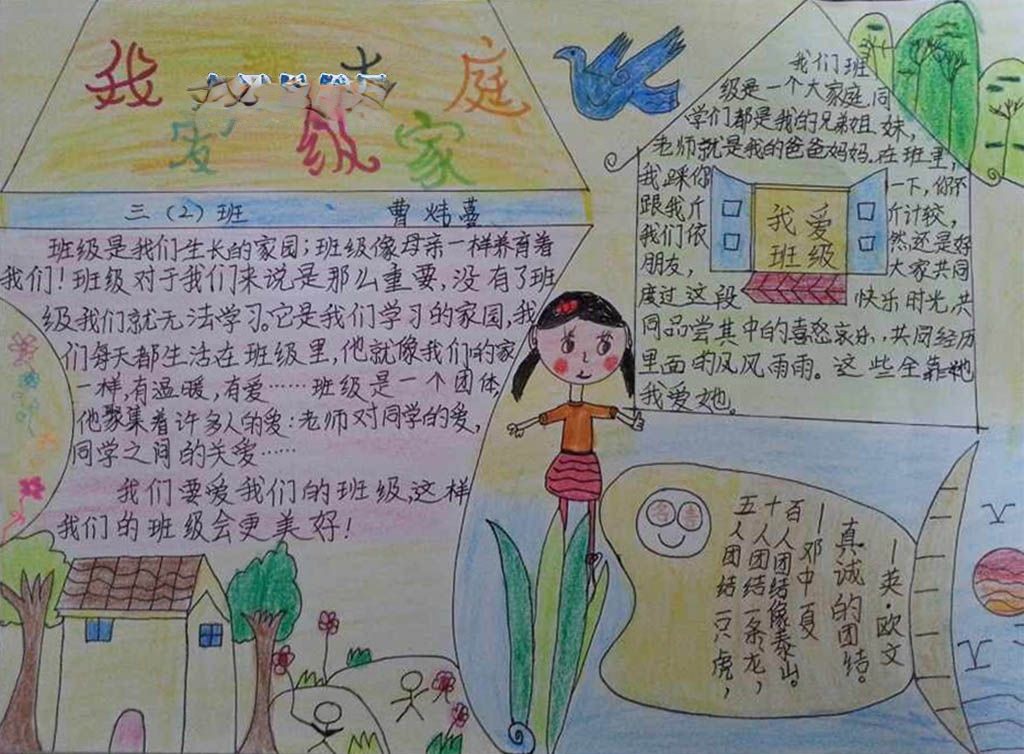 我 庭
级 家
三（2）班 曹炜薹
班级是我们生长的家园；班级像母亲一样养育着
我们！班级对于我们来说是那么重要，没有了班
级我们就无法学习。它是我们学习的家园，我
们每天都生活在班级里，他就像我们的家
一样，有温暖，有爱……班级是一个团体，
他聚集着许多人的爱：老师对同学的爱，
同学之间的关爱……
我们要爱我们的班级，这样
我们的班级会更美好！
我们班
级是一个大家庭，同
学们都是我的兄弟姐妹，
老师就是我的爸爸妈妈。在班里，
我踩你一下，你不
跟我斤斤计较，
我们依然还是好
朋友，大家共同
度过这段快乐时光，共
同品尝其中的喜怒哀乐，共同经历
里面的风风雨雨。这些全靠她
我爱她。
我爱
班级
五人团结一只虎，
十人团结一条龙，
百人团结像泰山。
—邓中夏
真诚的团结。
—英·欧文